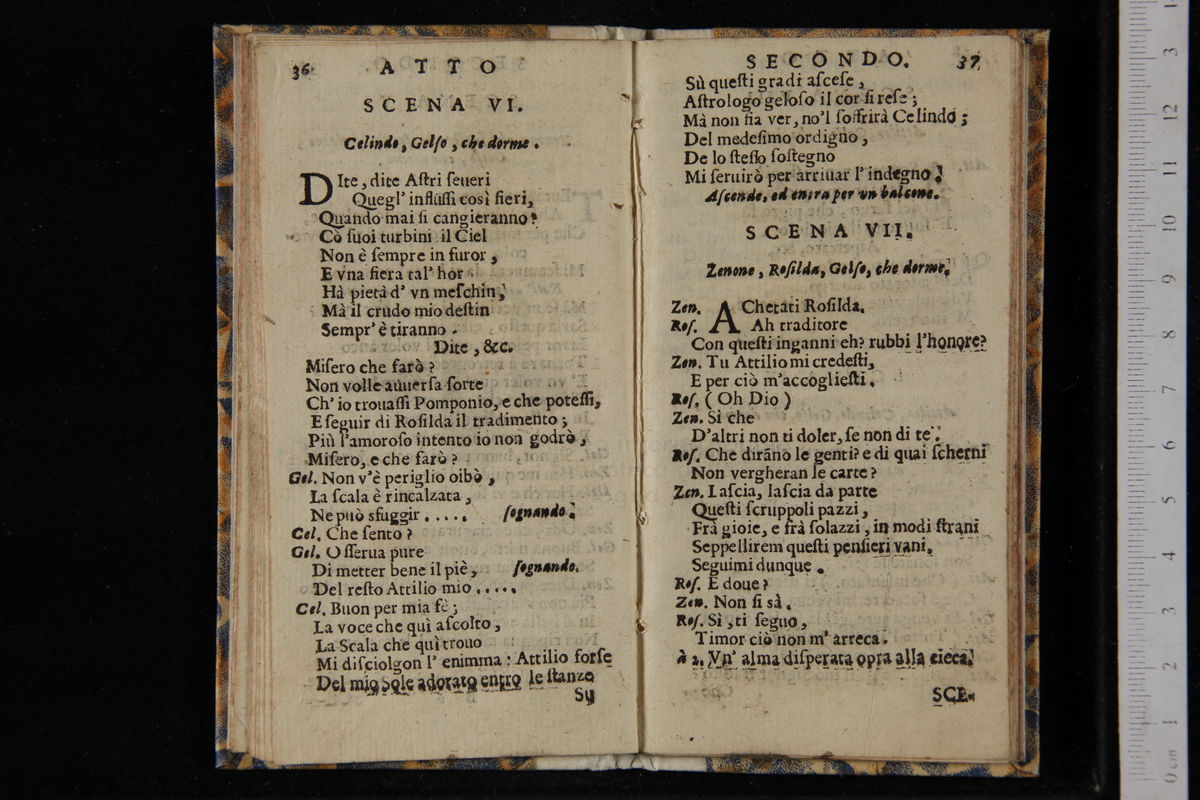 36 ATTO
SCENA VI.
Celindo, Gelſo, che dorme.
DIte, dite Aſtri ſeueri
Quegl' influſſi così fieri,
Quando mai ſi cangieranno?
Cõ ſuoi turbini il Ciel
Non è ſempre in furor,
E vna fiera tal' hor
Hà pietà d' vn meſchin,
Mà il crudo mio deſtin
Sempr' è tiranno.
Dite, &c.
Miſero che farò?
Non volle auuerſa ſorte
Ch' io trouaſſi Pomponio, e che poteſſi,
E ſeguir di Roſilda il tradimento;
Più l'amoroſo intento io non godrò,
Miſero, e che farò?
Gel. Non v'è periglio oibò,
La ſcala è rincalzata,
Ne può sfuggir..... ſognando.
Cel. Che ſento?
Gel. Oſſerua pure
Di metter bene il piè, ſognando.
Del reſto Attilio mio.....
Cel. Buon per mia fè;
La voce che quì aſcolto,
La Scala che quì trouo
Mi diſciolgon l' enimma: Attilio forſe
Del mio Sole adorato entro le ſtanze
Sù
SECONDO. 37
Sù queſti gradi aſceſe,
Aſtrologo geloſo il cor ſi reſe;
Mà non fia ver, no'l ſoffrirà Celindo;
Del medeſimo ordigno,
De lo ſteſſo ſoſtegno
Mi ſeruirò per arriuar l' indegno.
Aſcende, ed entra per vn balcone.
SCENA VII.
Zenone, Roſilda, Gelſo, che dorme.
Zen. AChetati Roſilda.
Roſ. Ah traditore
Con queſti inganni eh? rubbi l'honore?
Zen. Tu Attilio mi credeſti,
E per ciò m'accoglieſti.
Roſ. (Oh Dio)
Zen. Si che
D'altri non ti doler, ſe non di te.
Roſ. Che dirãno le genti? e di quai ſcherni
Non vergheran le carte?
Zen. Laſcia, laſcia da parte
Queſti ſcruppoli pazzi,
Frà gioie, e frà ſolazzi, in modi ſtrani
Seppellirem queſti penſieri vani.
Seguimi dunque.
Roſ. E doue?
Zen. Non ſi sà.
Roſ. Sì, ti ſeguo,
Timor ciò non m' arreca.
à 2. Vn' alma diſperata opra alla cieca.
SCE-